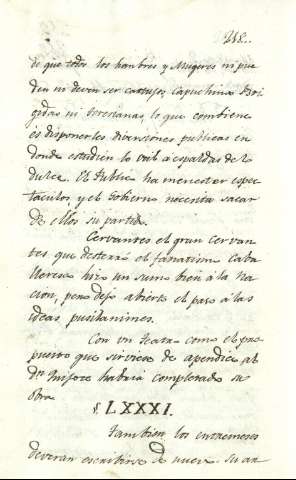 218..
de que todos los hombres y Mugeres ni pue
den ni deven ser cartujos, Capuchinas Bri
gidas ni Teresianas, lo que combiene
és disponerles diversiones publicas en
donde estudien lo util á espaldas del
dulce. El Publico ha menester espec
taculos, y el Gobierno necesita sacar
de ellos su partido.
Cervantes el gran Cervan
tes que desterró el fanatismo Caba
lleresco hizo un sumo bien á la Na
cion, pero dejó abierto el paso á las
ideas pusilanimes.
Con un teatro como el pro
puesto que sirviese de apendice al
Dn. Quijote habria completado su
obra.
§. LXXXI.
Tambien los entremeses
deveran escribirse de nuevo. Su an